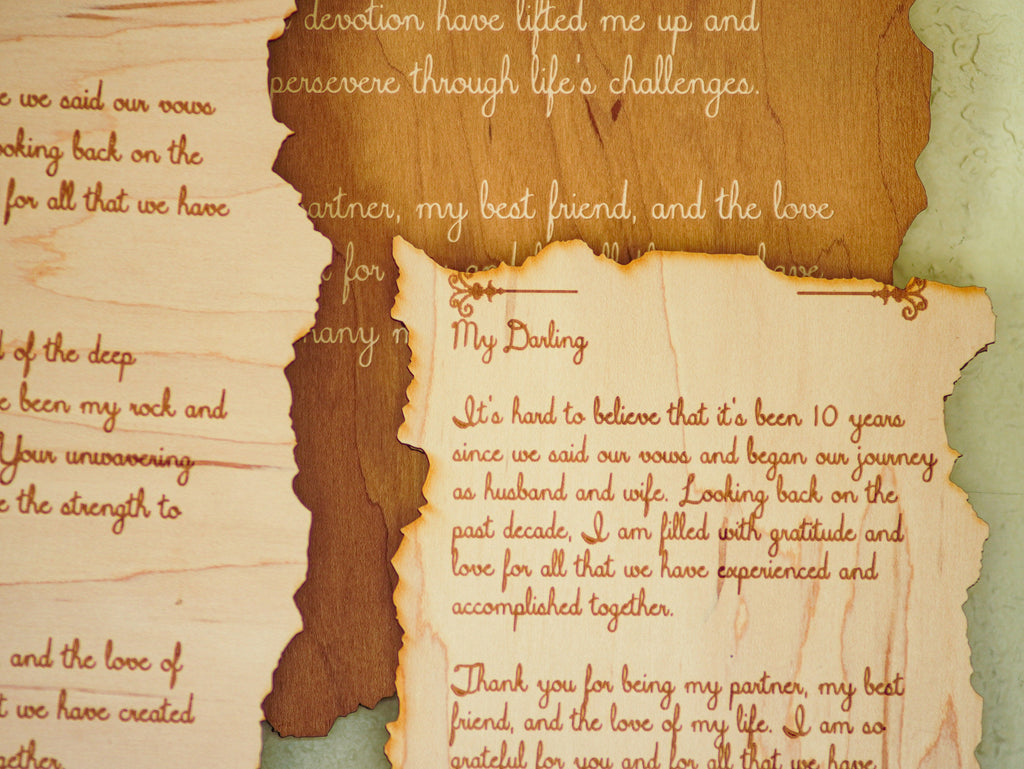 e we said our vows
ooking back on the
for all that we have
d of the deep
e been my rock and
Your unwavering
e the strength to
and the love of
t we have created
gether.
devotion have lifted me up and
persevere through life's challenges.
artner, my best friend, and the love
for
have
many m
My Darling
It's hard to believe that it's been 10 years
since we said our vows and began our journey
as husband and wife. Looking back on the
past decade, I am filled with gratitude and
love for all that we have experienced and
accomplished together.
Thank you for being my partner, my best
friend, and the love of my life. I am so
grateful for you and for all that we have